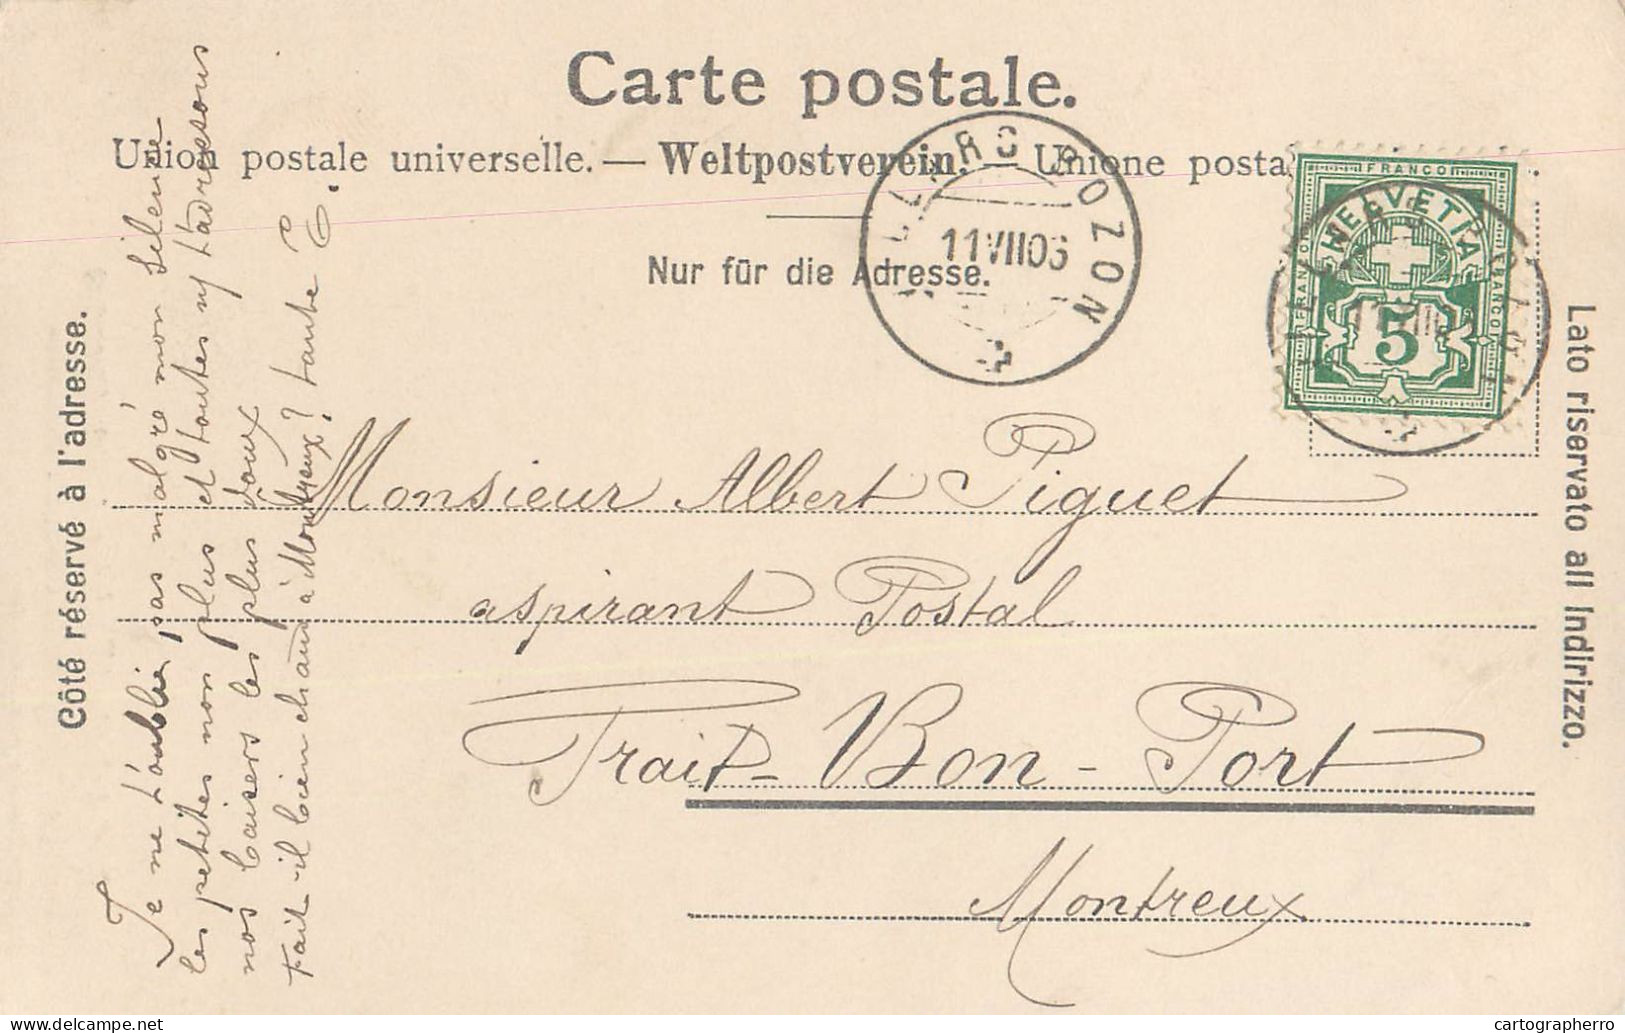 Carte postale.
Union postale universelle. — Weltpostverein. — Unione posta
Nur für die Adresse.
Côté réservé à l'adresse.
Lato riservato all Indirizzo.
VILLARS CHOZON
11 VII 06
FRANCO
FRANCO
FRANCO
HELVETIA
5
Monsieur Albert Piguet
aspirant Postal
Trait-Bon-Port
Montreux
Je ne t'oublie pas malgré mon silence
les petites non plus et toutes ns t'adressons
nos baisers les plus doux
Fait-il bien chaud à Montreux? tante C.
cartographerro